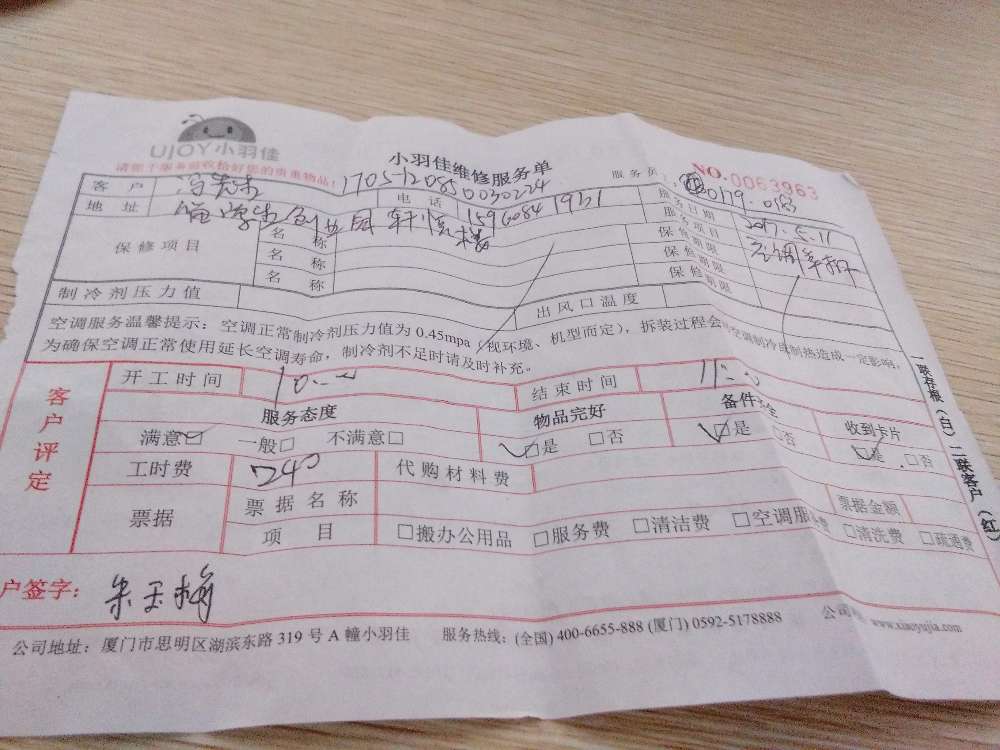 UJOY小羽佳
小羽佳维修服务单
请您于服务前收检好您的贵重物品!
服务员:
NO.0063963
客户
1705-12085 0030224
地址 留学生创业园 轩慎楼
电话 1596084 1931
服务日期 2017.5.11
保修项目
服务项目 空调拆
名称 保修期限
名称 保修期限
名称 保修期限
制冷剂压力值
出风口温度
空调服务温馨提示:空调正常制冷剂压力值为 0.45mpa(视环境、机型而定),拆装过程会 空调制冷或制热造成一定影响,
为确保空调正常使用延长空调寿命,制冷剂不足时请及时补充。
客户评定
开工时间 10:00
结束时间 11:00
服务态度 物品完好 备件 全 收到卡片
满意□ 一般□ 不满意□ □是 □否 □是 □否 □是 □否
工时费 240
代购材料费
票据 票据名称 票据金额
项目 □搬办公用品 □服务费 □清洁费 □空调服 费 □清洗费 □疏通费
户签字: 朱玉梅
公司地址:厦门市思明区湖滨东路 319 号 A 幢小羽佳 服务热线:(全国) 400-6655-888 (厦门) 0592-5178888 公司 www.xiaoyujia.com
一联存根(白) 二联客户(红)